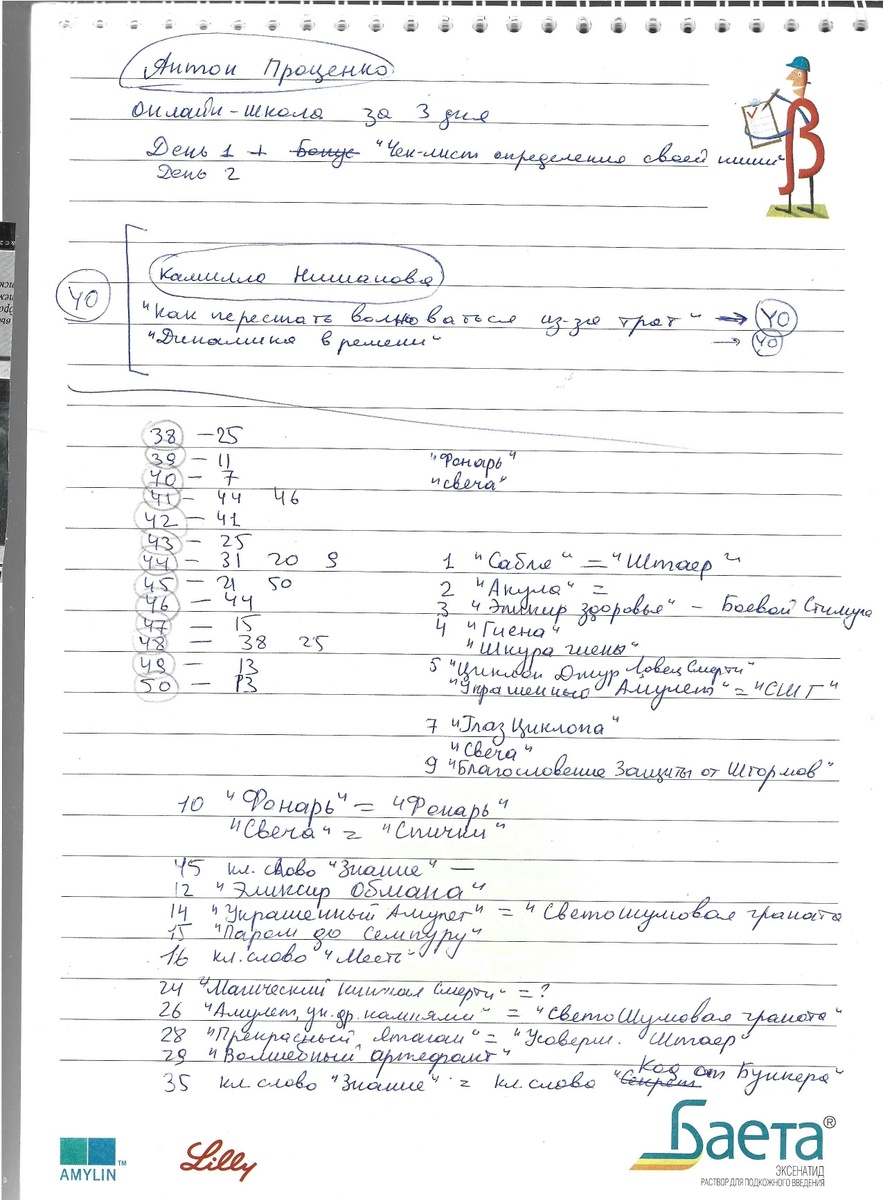 Антон Проценко
Онлайн-школа за 3 дня
День 1 + Бонус "Чек-лист определения своей ниши"
День 2
Камилла Нишанова
YO
"Как перестать волноваться из-за трат" → YO
"Динамика времени" → YO
38 – 25
39 – 11 "Фонарь"
40 – 7 "Свеча"
41 – 44 46
42 – 41
43 – 25
44 – 31 20 9 1 "Сабля" = "Штаер"
45 – 21 50 2 "Акула" =
46 – 44 3 "Эликсир здоровья" – Боевой Стимул
47 – 15 4 "Гиена"
48 – 38 25 "Шкура гиены"
49 – 13 5 "Циклоп Джур Ловец Смерти"
50 – 13 "Украшенный Амулет" = "СШГ"
7 "Глаз Циклопа"
"Свеча"
9 "Благословение Защиты от Штормов"
10 "Фонарь" = "Фонарь"
"Свеча" = "Спички"
45 кл. слово "Знание" –
12 "Эликсир Обмана"
14 "Украшенный Амулет" = "Светошумовая граната
15 "Паром до Семпуру"
16 кл. слово "Месть"
24 "Магический Кинжал Смерти" = ?
26 "Амулет, ук. др. камнями" = "СветоШумовая граната"
28 "Прекрасный Ятаган" = "Усоверш. Штаер"
29 "Волшебный артефакт"
35 кл. слово "Знание" = кл. слово "Секрет Код от Бункера"
AMYLIN™
Lilly
Баета®
ЭКСЕНАТИД
РАСТВОР ДЛЯ ПОДКОЖНОГО ВВЕДЕНИЯ